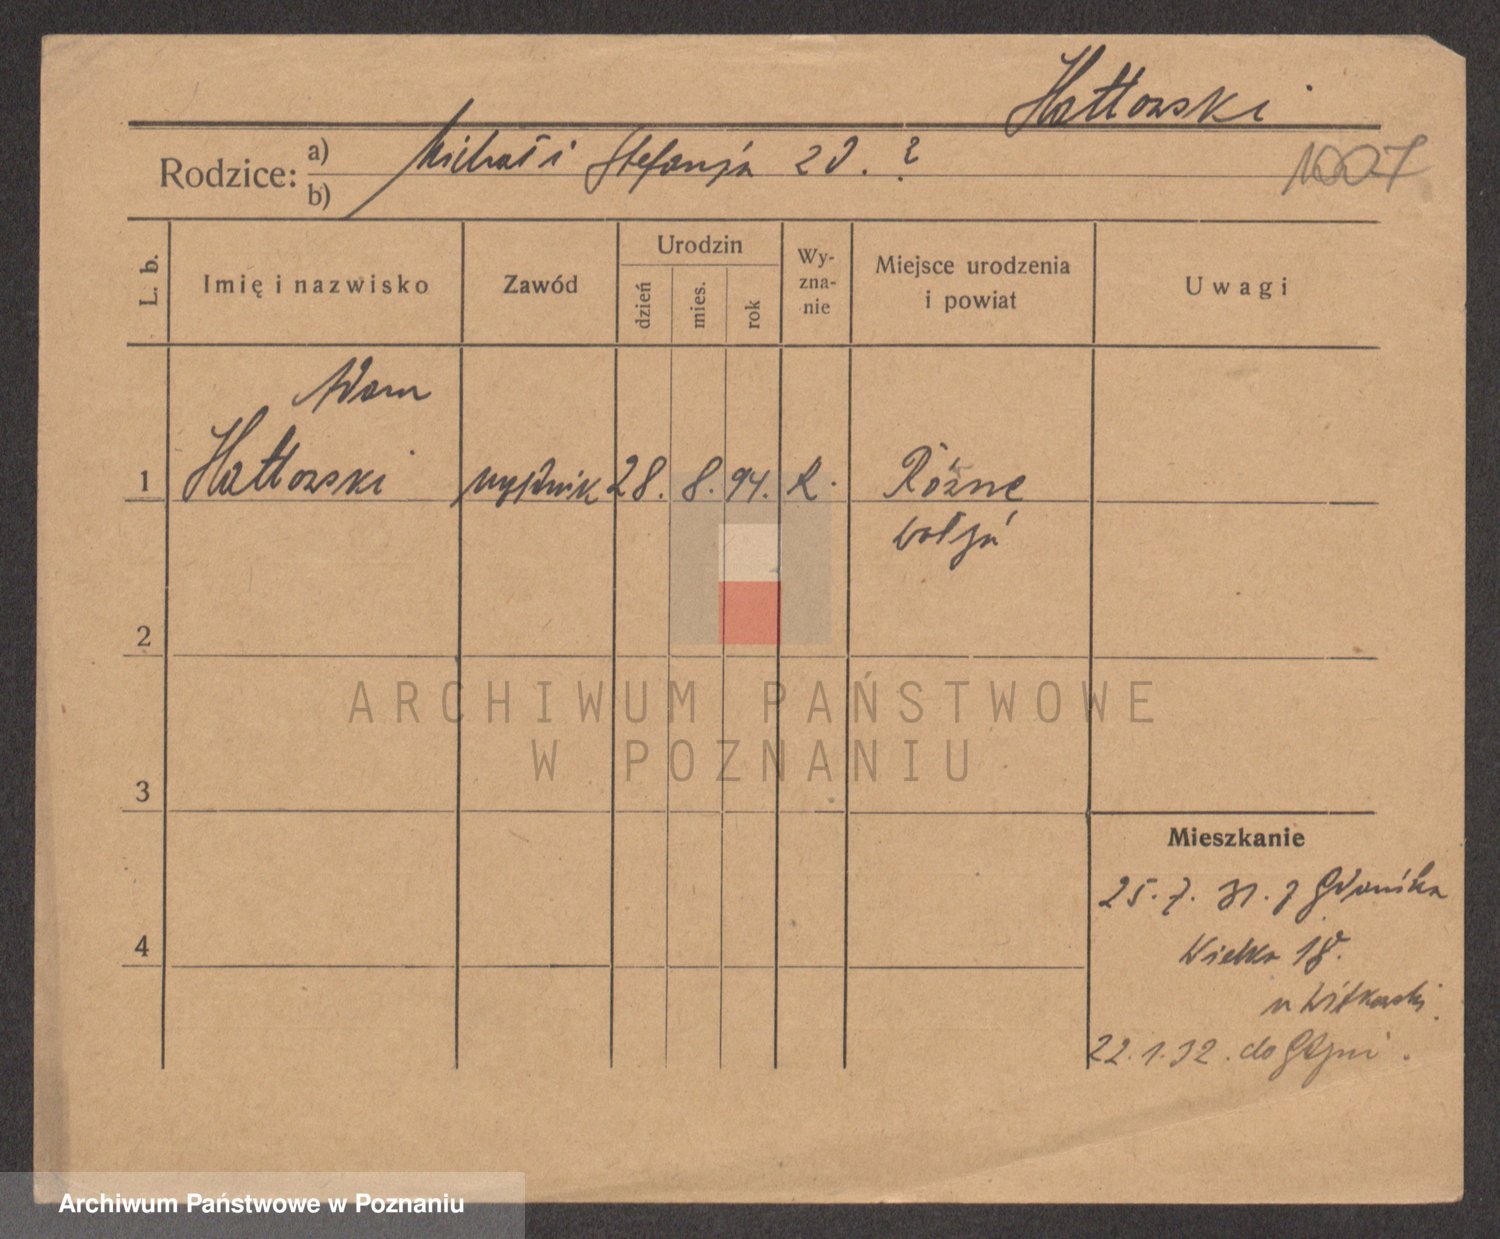 Hattowski
Rodzice: a) Michał i Stefanja zd. ?
b)
1007
L. b.
Imię i nazwisko
Zawód
Urodzin
dzień
mies.
rok
Wy-
zna-
nie
Miejsce urodzenia
i powiat
Uwagi
Adam
1 Hattowski 28. 8. 94. R. Różne
2
3
4
Mieszkanie
25. 7. 31. z Gdańska
Wielka 18.
u Witkowski
22. 1. 32. do Gdyni.
ARCHIWUM PAŃSTWOWE
W POZNANIU
Archiwum Państwowe w Poznaniu